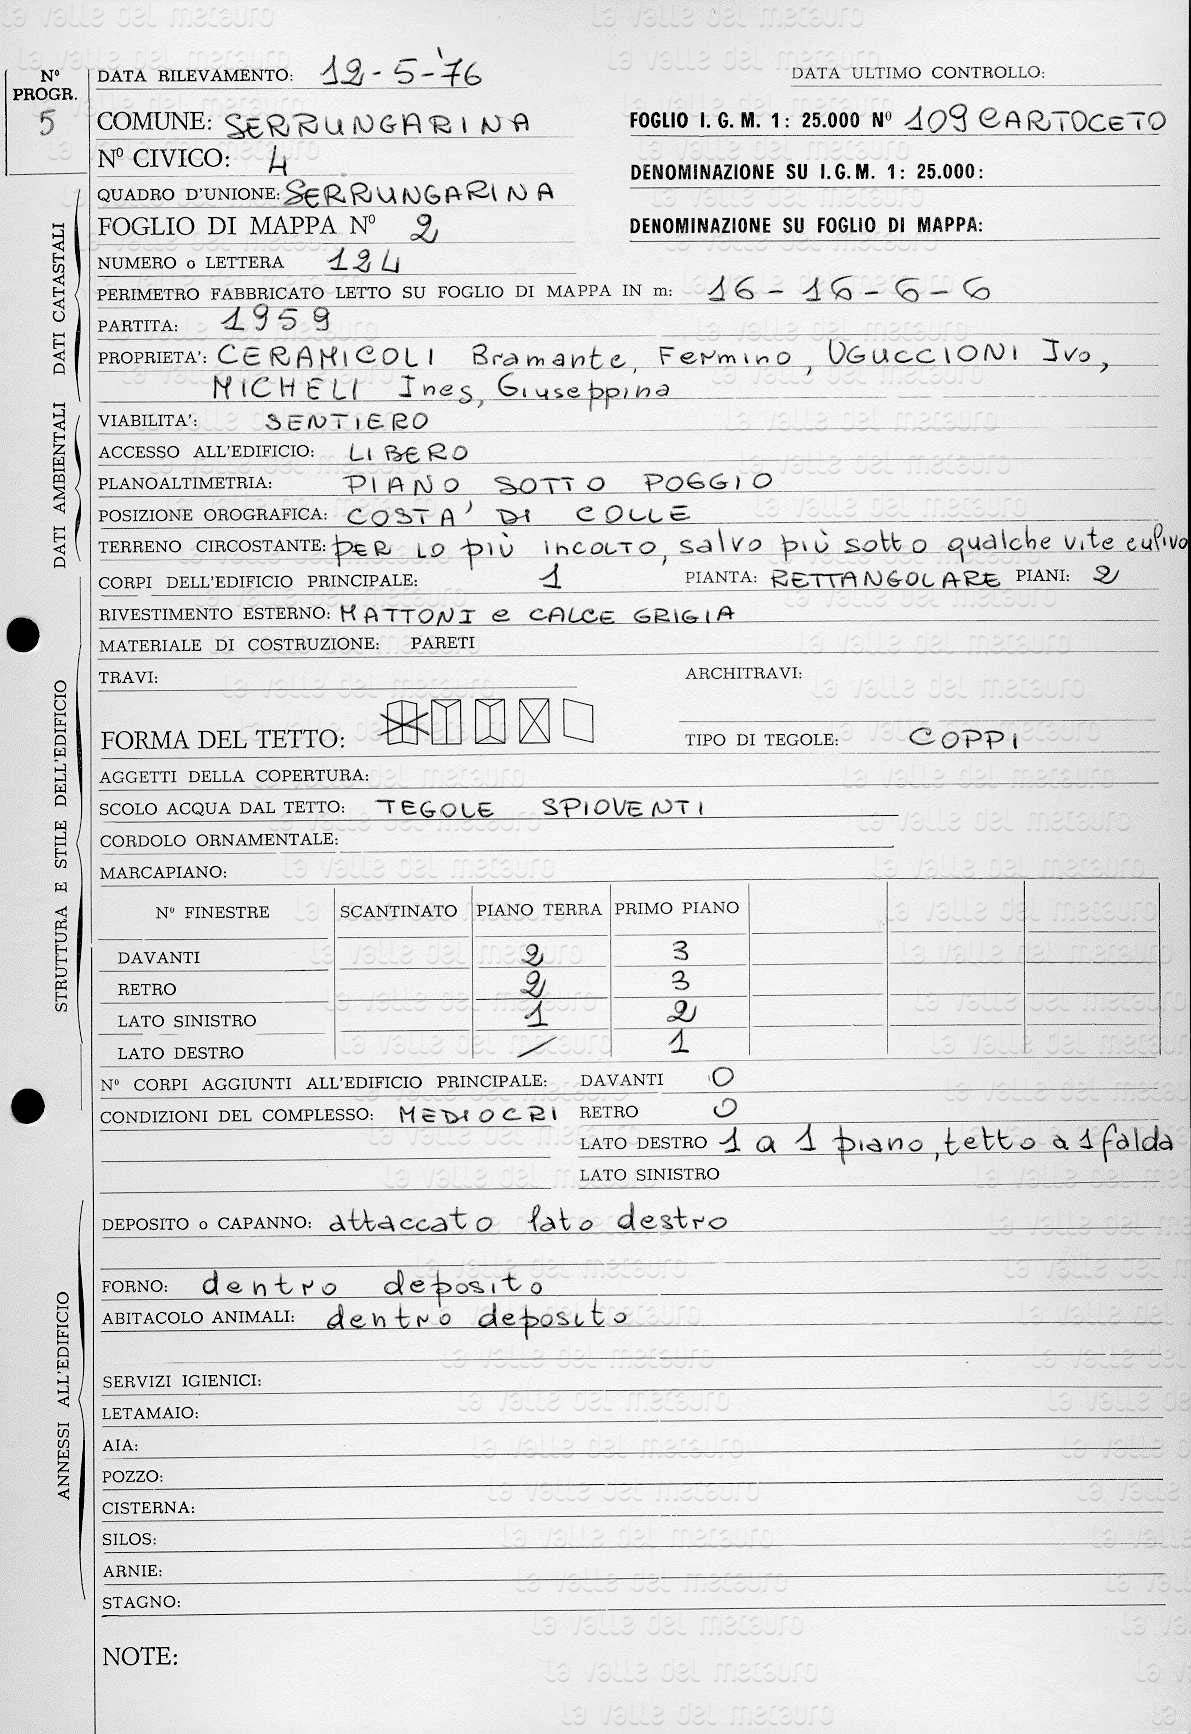 Nº PROGR. 5
DATA RILEVAMENTO: 12-5-'76 DATA ULTIMO CONTROLLO:
COMUNE: SERRUNGARINA FOGLIO I. G. M. 1: 25.000 Nº 109 CARTOCETO
Nº CIVICO: 4 DENOMINAZIONE SU I.G.M. 1: 25.000:
QUADRO D'UNIONE: SERRUNGARINA
FOGLIO DI MAPPA Nº 2 DENOMINAZIONE SU FOGLIO DI MAPPA:
NUMERO o LETTERA 124
PERIMETRO FABBRICATO LETTO SU FOGLIO DI MAPPA IN m: 16-16-6-6
PARTITA: 1959
PROPRIETA': CERAMICOLI Bramante, Fermino, UGUCCIONI Ivo,
MICHELI Ines, Giuseppina
DATI CATASTALI
VIABILITA': SENTIERO
ACCESSO ALL'EDIFICIO: LIBERO
PLANOALTIMETRIA: PIANO SOTTO POGGIO
POSIZIONE OROGRAFICA: COSTA' DI COLLE
TERRENO CIRCOSTANTE: PER LO più incolto, salvo più sotto qualche vite e ulivo
DATI AMBIENTALI
CORPI DELL'EDIFICIO PRINCIPALE: 1 PIANTA: RETTANGOLARE PIANI: 2
RIVESTIMENTO ESTERNO: MATTONI e CALCE GRIGIA
MATERIALE DI COSTRUZIONE: PARETI
TRAVI: ARCHITRAVI:
FORMA DEL TETTO: TIPO DI TEGOLE: COPPI
AGGETTI DELLA COPERTURA:
SCOLO ACQUA DAL TETTO: TEGOLE SPIOVENTI
CORDOLO ORNAMENTALE:
MARCAPIANO:
Nº FINESTRE SCANTINATO PIANO TERRA PRIMO PIANO
DAVANTI 2 3
RETRO 2 3
LATO SINISTRO 1 2
LATO DESTRO / 1
STRUTTURA E STILE DELL'EDIFICIO
Nº CORPI AGGIUNTI ALL'EDIFICIO PRINCIPALE: DAVANTI 0
CONDIZIONI DEL COMPLESSO: MEDIOCRI RETRO 0
LATO DESTRO 1 a 1 piano, tetto a 1 falda
LATO SINISTRO
DEPOSITO o CAPANNO: attaccato lato destro
FORNO: dentro deposito
ABITACOLO ANIMALI: dentro deposito
SERVIZI IGIENICI:
LETAMAIO:
AIA:
POZZO:
CISTERNA:
SILOS:
ARNIE:
STAGNO:
ANNESSI ALL'EDIFICIO
NOTE:
la valle del metauro